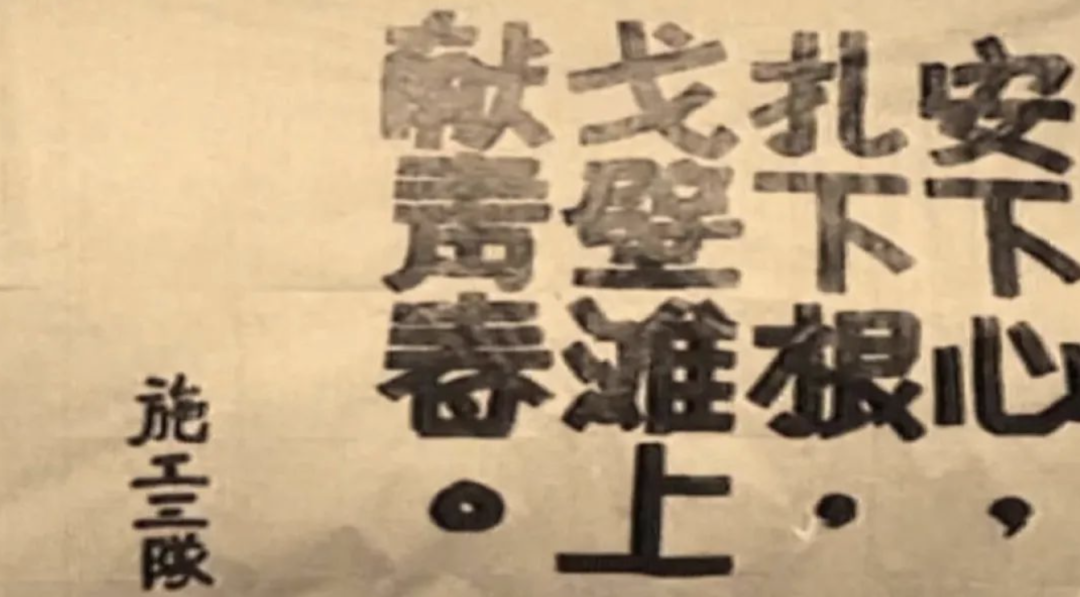 安下心，
扎下根，
戈壁滩上
献青春。
施工三隊